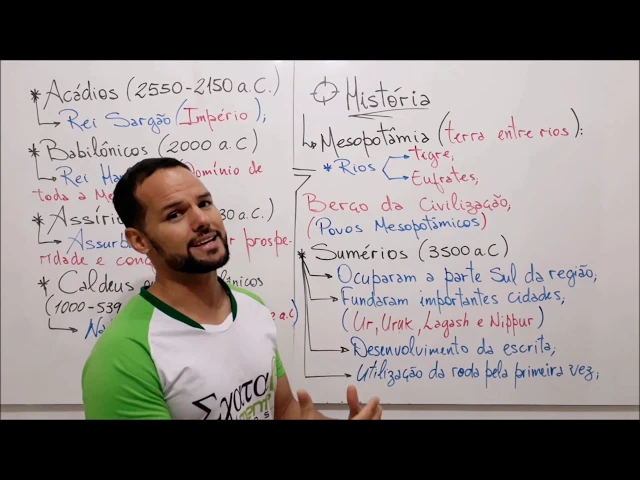 * Acádios (2550-2150 a.C.)
Rei Sargão (Império);
* Babilônicos (2000 a.C)
Rei Domínio de
toda a
* 30 a.C.)
prospe-
ridade e
* Caldeus
(1000-539
a.C)
História
Mesopotâmia (terra entre rios):
* Rios Tigre,
Eufrates;
Berço da Civilização,
(Povos Mesopotâmicos)
* Sumérios (3500 a.C)
Ocuparam a parte Sul da região;
Fundaram importantes cidades,
(Ur, Uruk, Lagash e Nippur)
Desenvolvimento da escrita;
Utilização da roda pela primeira vez;